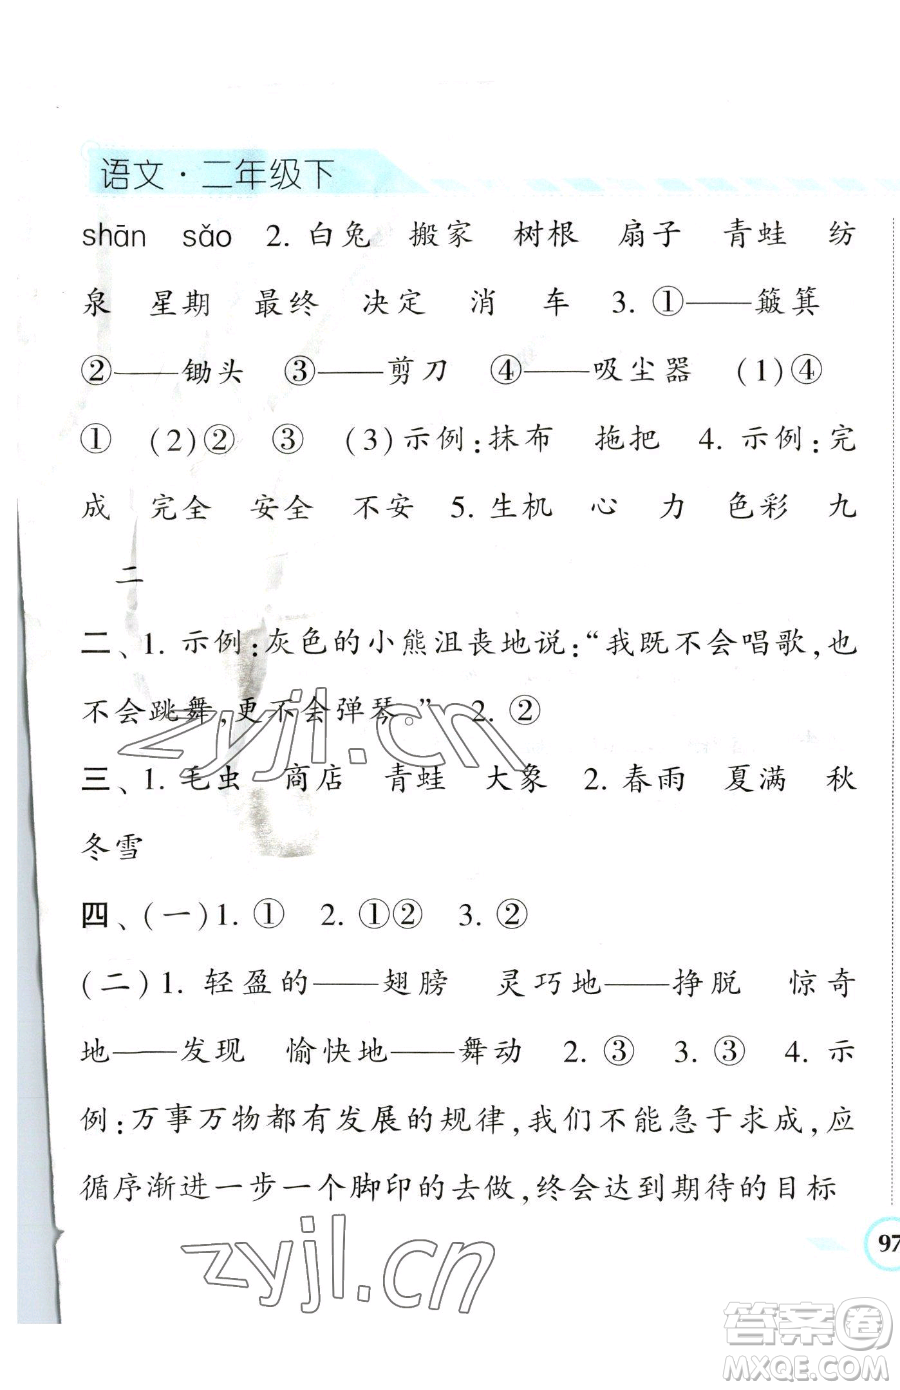 语文·二年级下
shān sǎo 2. 白兔 搬家 树根 扇子 青蛙 纺
泉 星期 最终 决定 消 车 3. ①——簸箕
②——锄头 ③——剪刀 ④——吸尘器 (1)④
① (2)② ③ (3)示例:抹布 拖把 4. 示例:完
成 完全 安全 不安 5. 生机 心 力 色彩 九
二
二、1. 示例:灰色的小熊沮丧地说:“我既不会唱歌,也
不会跳舞,更不会弹琴。” 2. ②
三、1. 毛虫 商店 青蛙 大象 2. 春雨 夏满 秋
冬雪
四、(一)1. ① 2. ①② 3. ②
(二)1. 轻盈的——翅膀 灵巧地——挣脱 惊奇
地——发现 愉快地——舞动 2. ③ 3. ③ 4. 示
例:万事万物都有发展的规律,我们不能急于求成,应
循序渐进一步一个脚印的去做,终会达到期待的目标
97
zyjl.cn
zyjl.cn
答案卷
MXQE.COM